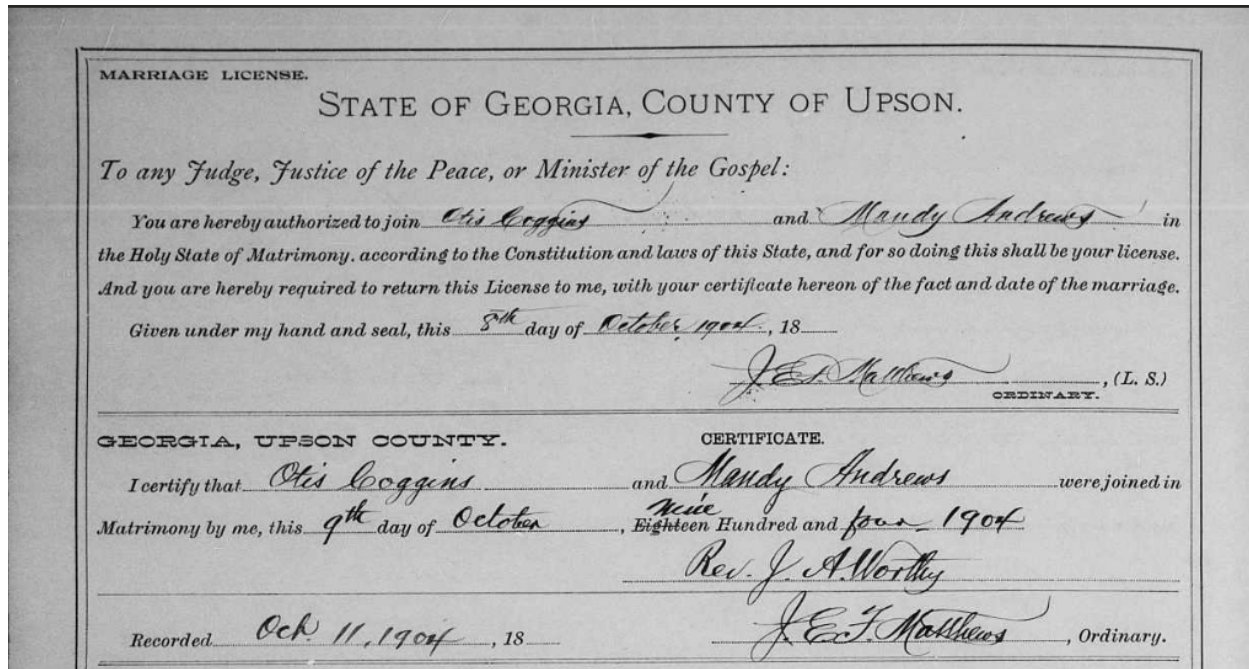 MARRIAGE LICENSE.
STATE OF GEORGIA, COUNTY OF UPSON.
To any Judge, Justice of the Peace, or Minister of the Gospel:
You are hereby authorized to join Otis Coggins and Mandy Andrews in
the Holy State of Matrimony. according to the Constitution and laws of this State, and for so doing this shall be your license.
And you are hereby required to return this License to me, with your certificate hereon of the fact and date of the marriage.
Given under my hand and seal, this 8th day of October 1904., 18
J. E. F. Matthews, (L. S.)
ORDINARY.
GEORGIA, UPSON COUNTY. CERTIFICATE.
I certify that Otis Coggins and Mandy Andrews were joined in
Nine
Matrimony by me, this 9th day of October, Eighteen Hundred and four 1904
Rev. J. A. Worthy
Recorded Oct. 11, 1904, 18 J. E. F. Matthews, Ordinary.